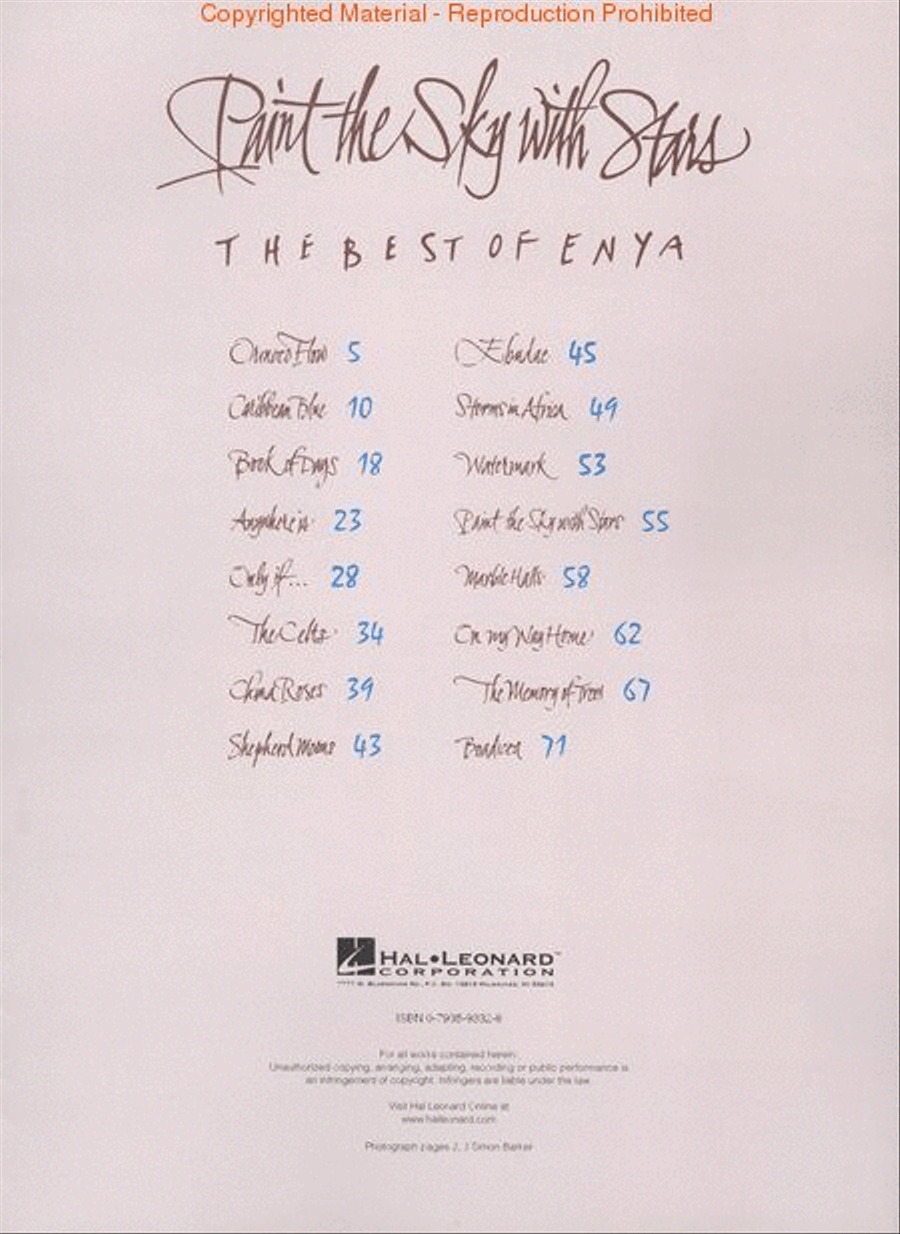 Copyrighted Material - Reproduction Prohibited
Paint the Sky with Stars
THE BEST OF ENYA
Orinoco Flow 5
Caribbean Blue 10
Book of Days 18
Anywhere is 23
Only if... 28
The Celts 34
China Roses 39
Shepherd Moons 43
Ebudae 45
Storms in Africa 49
Watermark 53
Paint the Sky with Stars 55
Marble Halls 58
On my Way Home 62
The Memory of Trees 67
Boadicea 71
HAL•LEONARD™
CORPORATION
ISBN
For all works contained herein:
Unauthorized copying, arranging, adapting, recording or public performance is
an infringement of copyright. Infringers are liable under the law.
Visit Hal Leonard Online at
www.halleonard.com
Photograph pages 2, 3 Simon